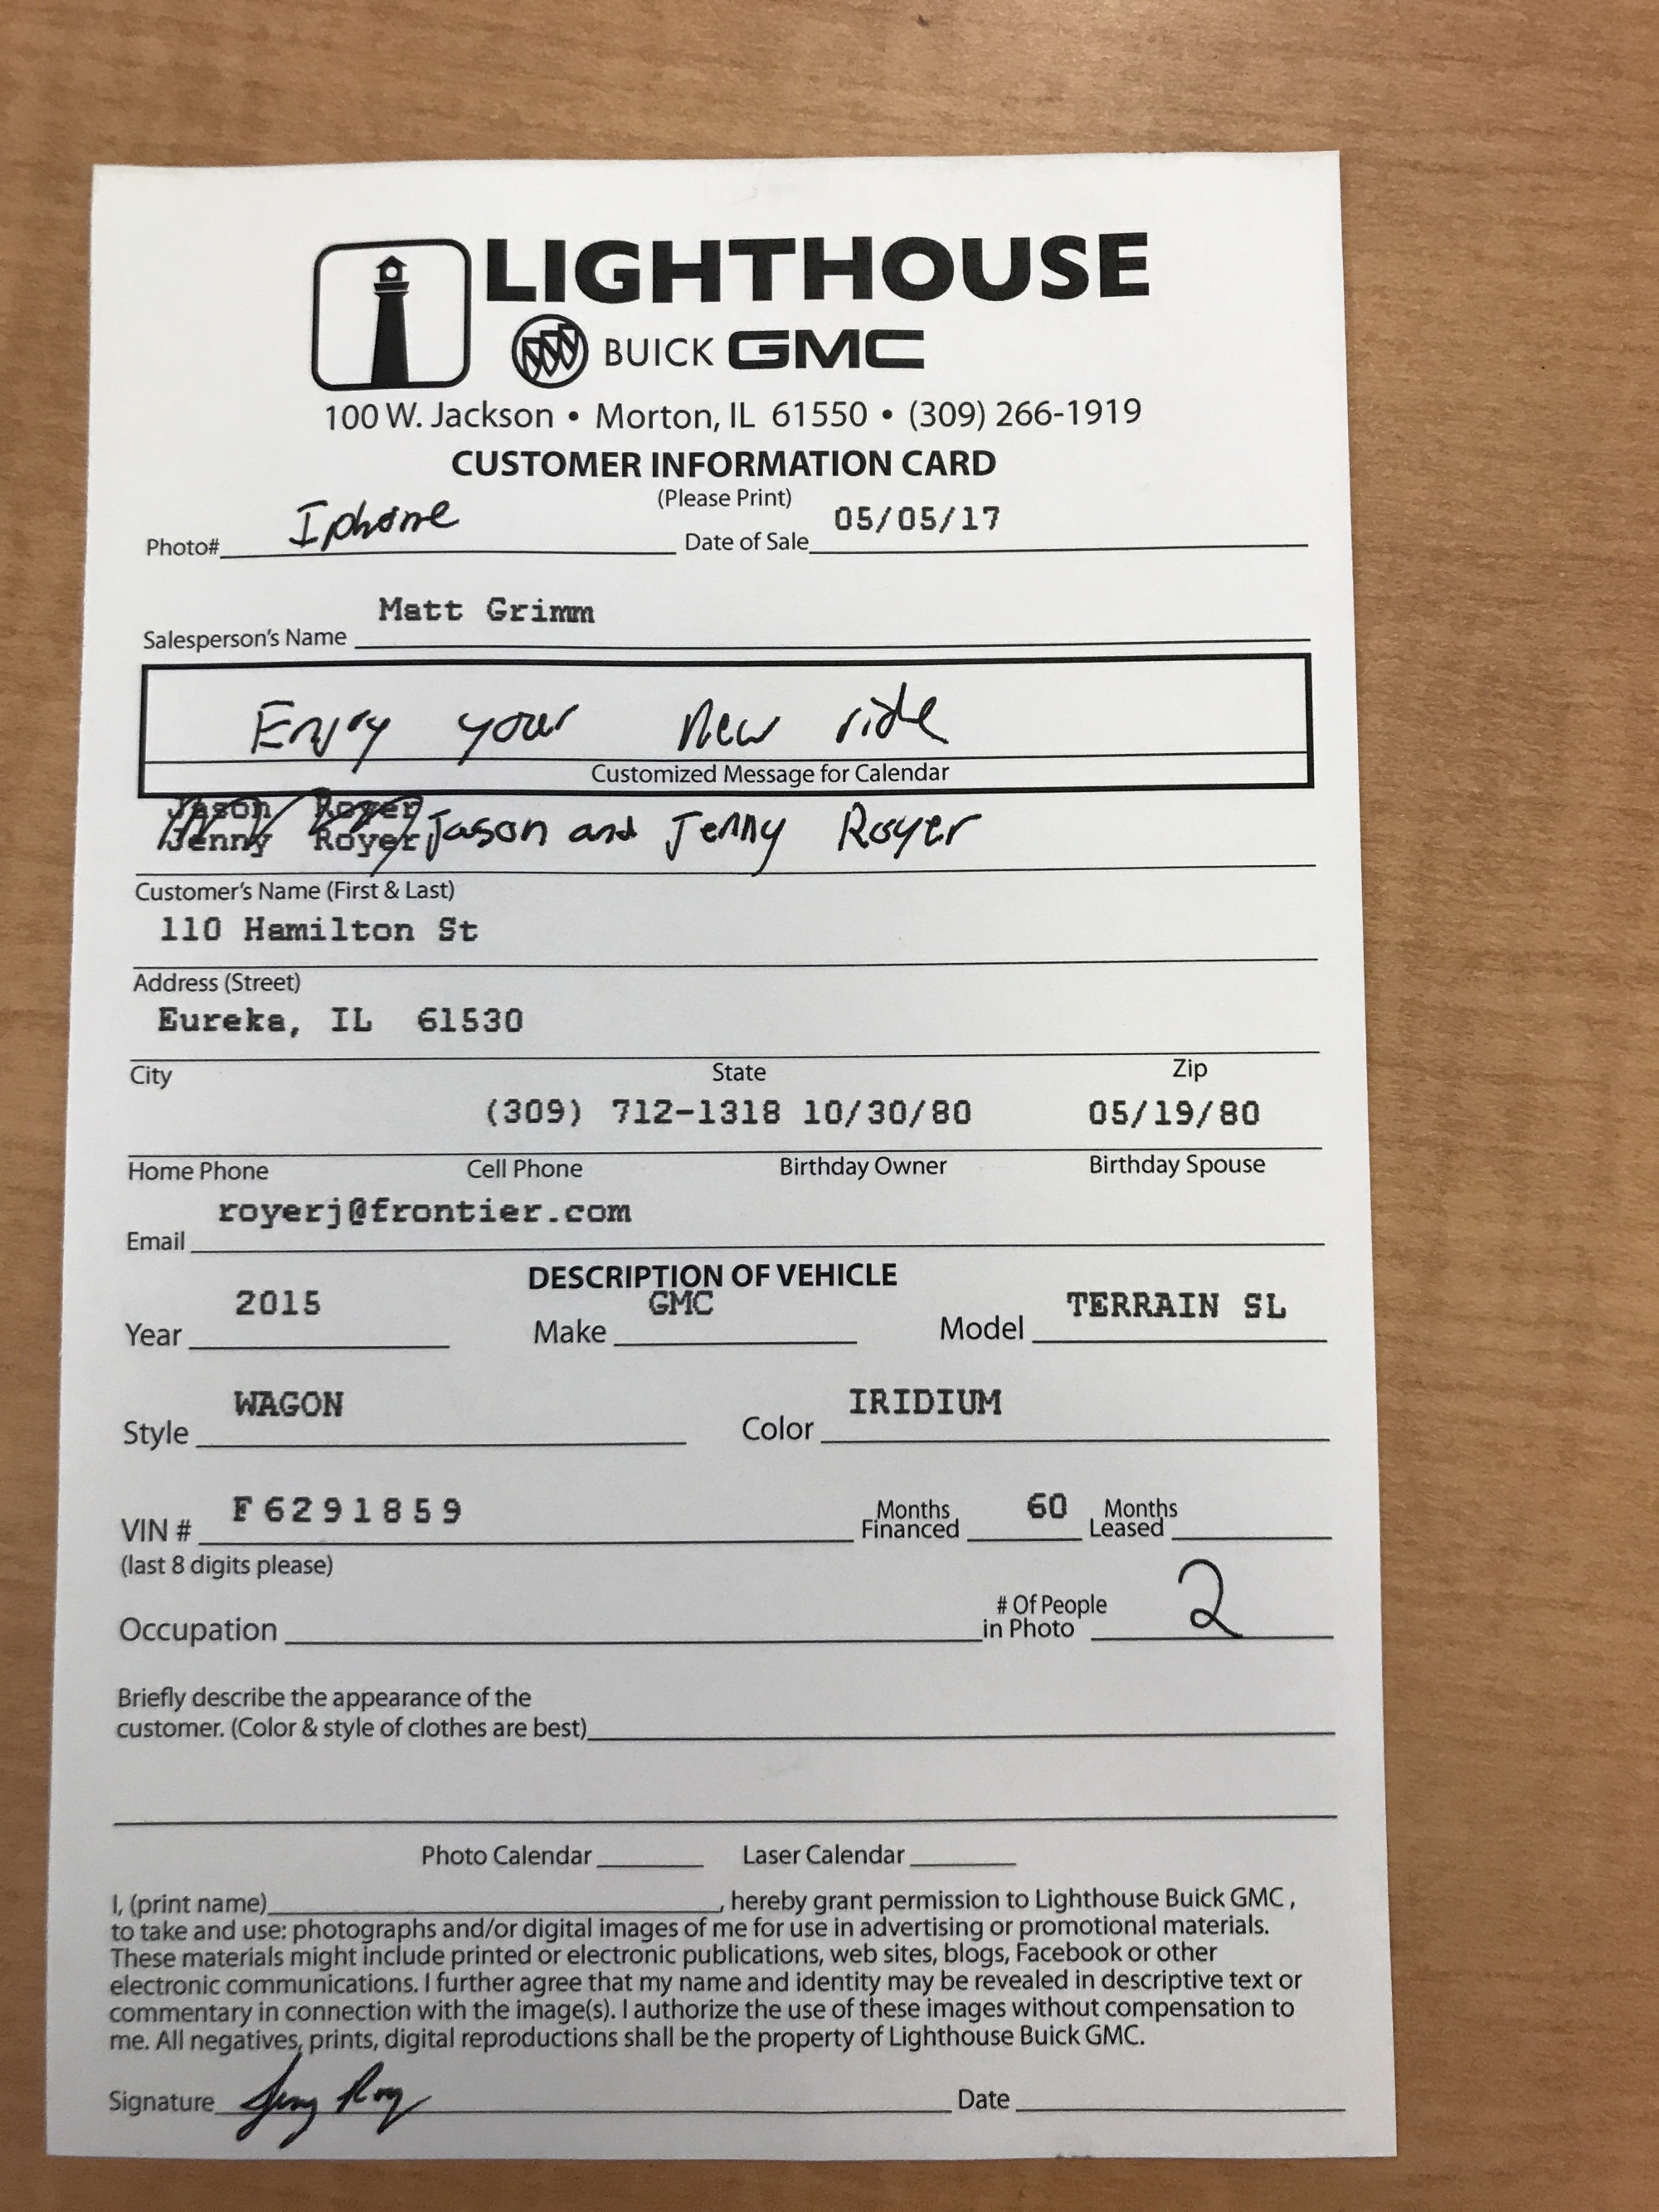 LIGHTHOUSE
BUICK GMC
100 W. Jackson • Morton, IL 61550 • (309) 266-1919
CUSTOMER INFORMATION CARD
(Please Print)
Photo# Iphone Date of Sale 05/05/17
Salesperson's Name Matt Grimm
Enjoy your new ride
Customized Message for Calendar
Jason Royer
Jenny Royer Jason and Jenny Royer
Customer's Name (First & Last)
110 Hamilton St
Address (Street)
Eureka, IL 61530
City State Zip
(309) 712-1318 10/30/80 05/19/80
Home Phone Cell Phone Birthday Owner Birthday Spouse
Email royerj@frontier.com
DESCRIPTION OF VEHICLE
Year 2015 Make GMC Model TERRAIN SL
Style WAGON Color IRIDIUM
VIN # F6291859 Months Financed 60 Months Leased
(last 8 digits please)
Occupation # Of People in Photo 2
Briefly describe the appearance of the
customer. (Color & style of clothes are best)
Photo Calendar Laser Calendar
I, (print name) , hereby grant permission to Lighthouse Buick GMC ,
to take and use: photographs and/or digital images of me for use in advertising or promotional materials.
These materials might include printed or electronic publications, web sites, blogs, Facebook or other
electronic communications. I further agree that my name and identity may be revealed in descriptive text or
commentary in connection with the image(s). I authorize the use of these images without compensation to
me. All negatives, prints, digital reproductions shall be the property of Lighthouse Buick GMC.
Signature Date